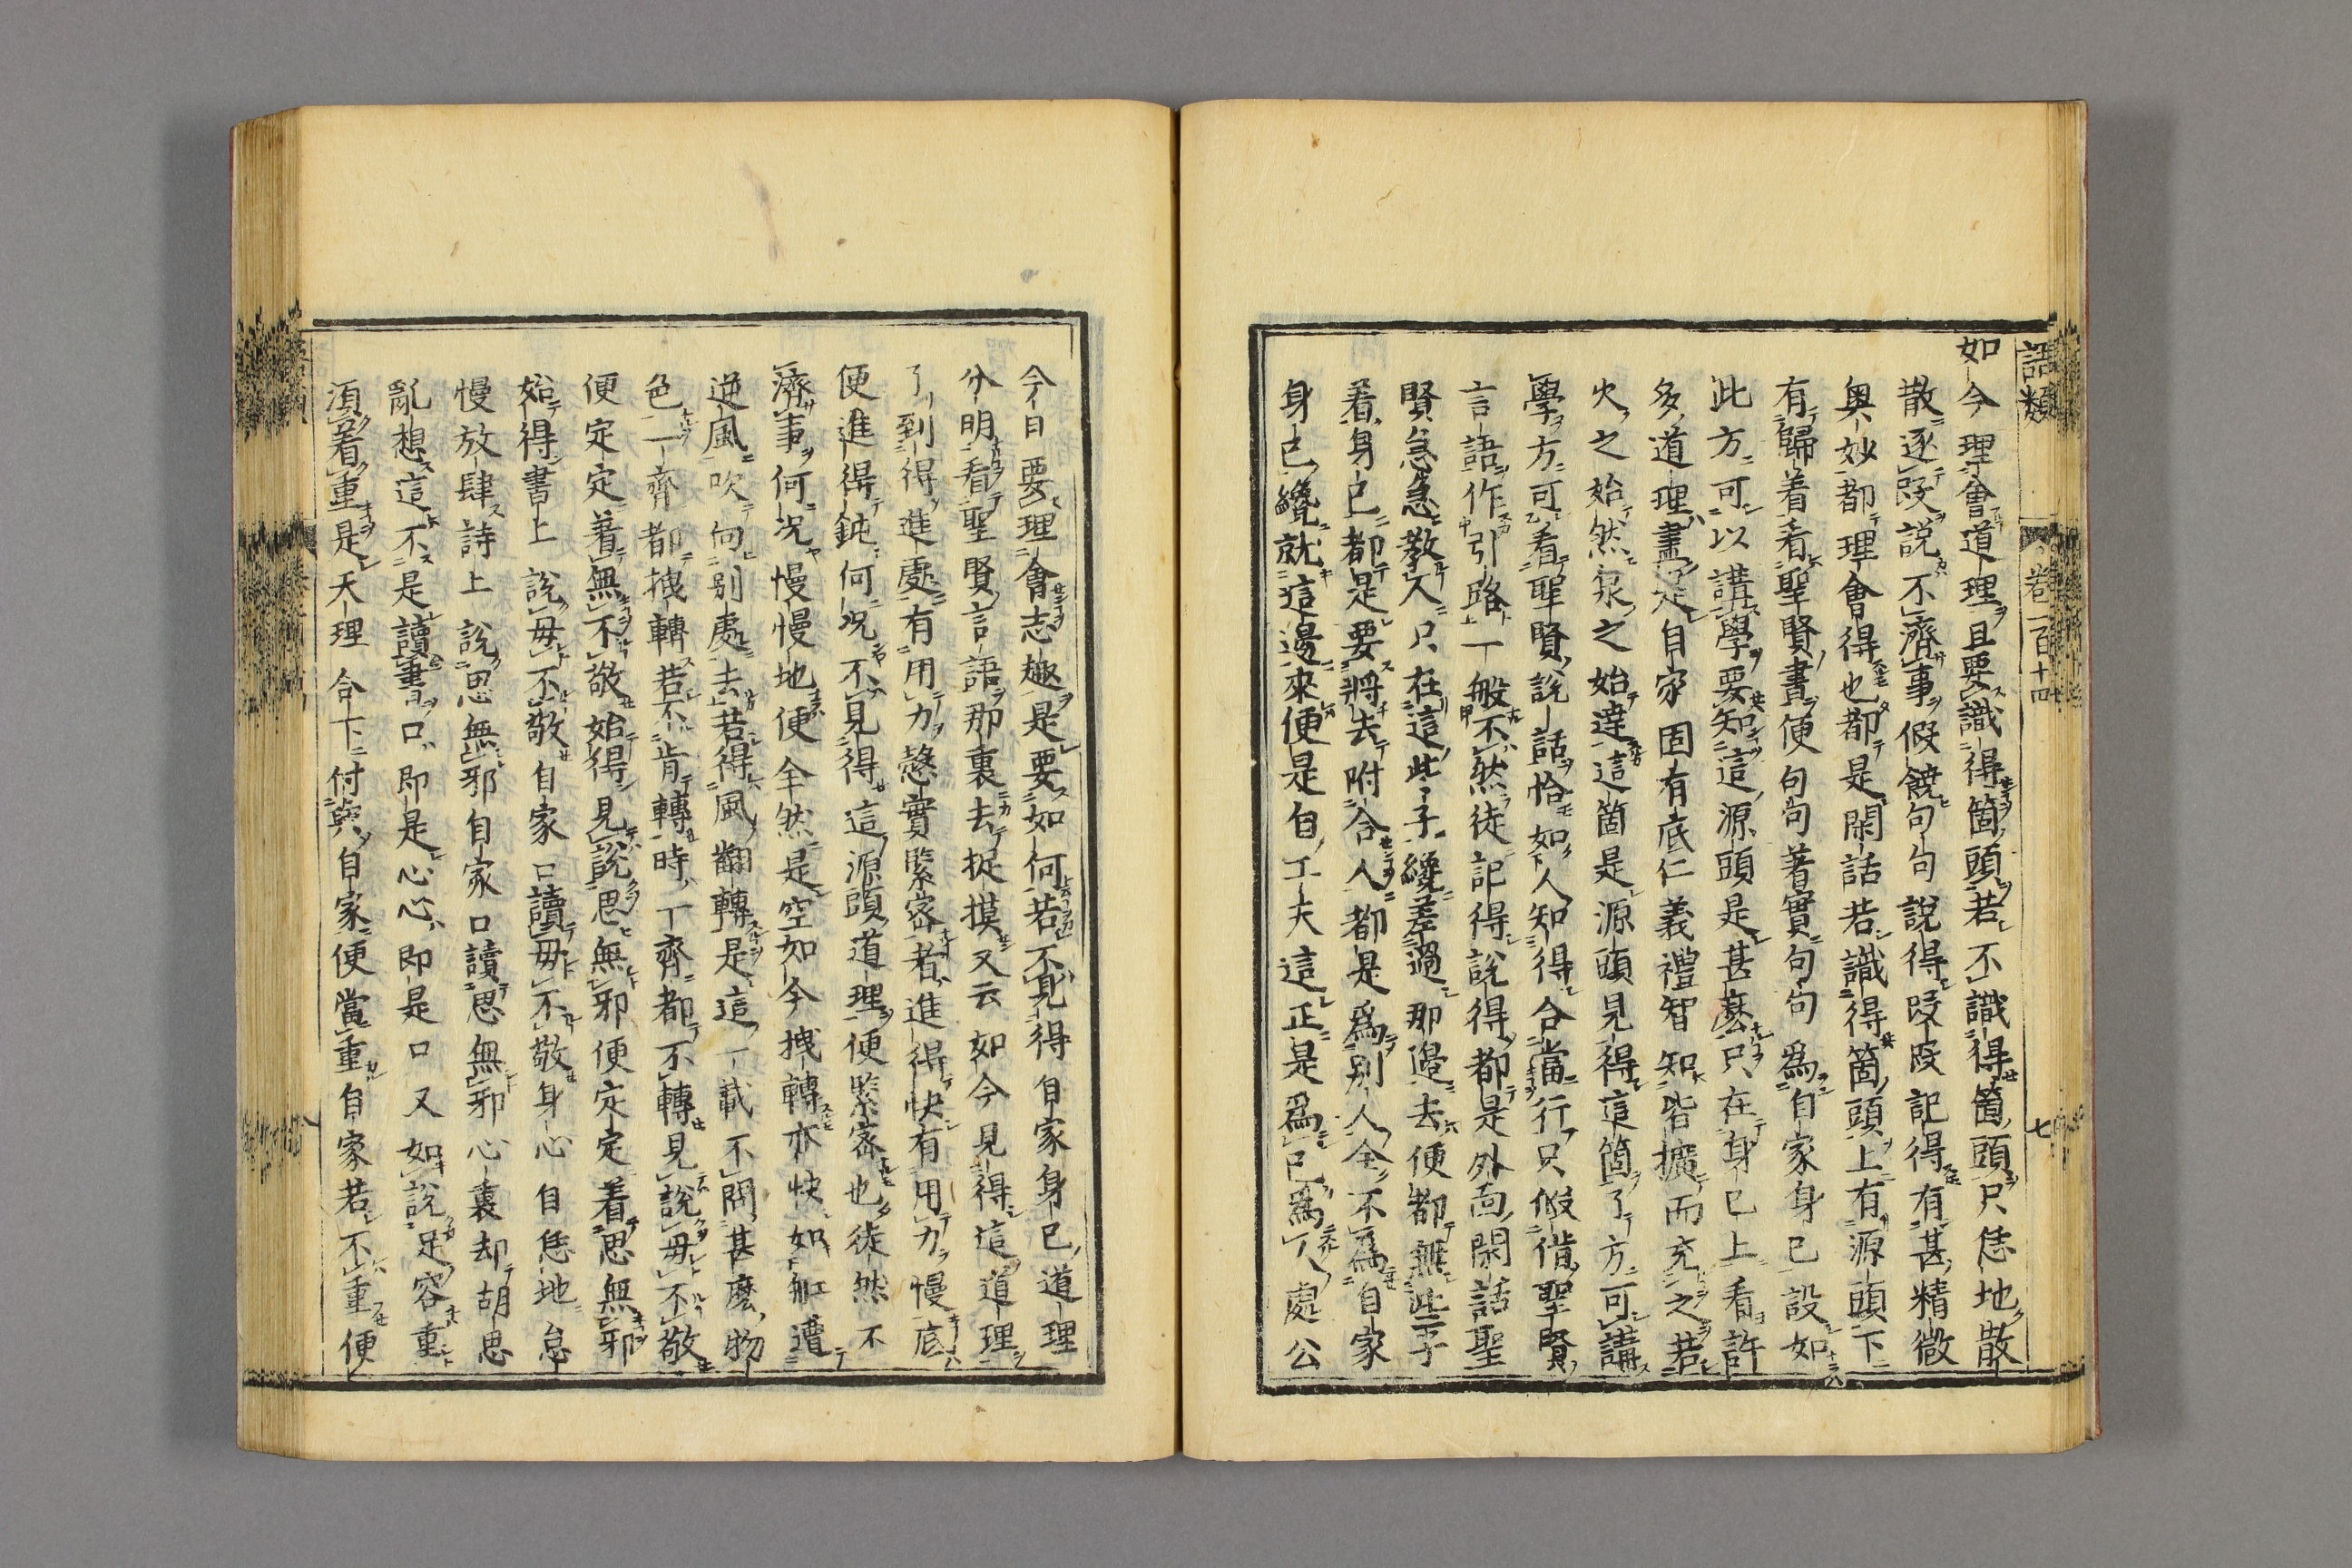 語類
卷一百十四
七
如今理會道理且要識得箇頭若不識得箇頭只恁地散
散逐段說不濟事假饒句句說得段段記得有甚精微
奧妙都理會得也都是閑話若識得箇頭上有源頭下
有歸着看聖賢書便句句著實句句爲自家身已設如
此方可以講學要知這源頭是甚麽只在身已上看許
多道理盡是自家固有底仁義禮智知皆擴而充之若
火之始然泉之始達這箇是源頭見得這箇了方可講
學方可看聖賢說話恰如人知得合當行只假借聖賢
言語作引路一般不然徒記得說得都是外面閑話聖
賢急急教人只在這些子纔差過那邊去便都無些子
着身已都是要將去附合人都是爲別人全不爲自家
身已纔就這邊來便是自工夫這正是爲已爲人處公
今日要理會志趣是要如何若不見得自家身已道理
分明看聖賢言語那裏去捉摸又云如今見得這道理
了到得進處有用力慤實緊密者進得快有用力慢底
便進得鈍何况不見得這源頭道理便緊密也徒然不
濟事何况慢慢地便全然是空如今拽轉亦快如舡遭
逆風吹向別處去若得風翻轉是這一載不問甚麽物
色一齊都拽轉若不肯轉時一齊都不轉見說毋不敬
便定定着無不敬始得見說思無邪便定定着思無邪
始得書上說毋不敬自家口讀毋不敬身心自恁地怠
慢放肆詩上說思無邪自家口讀思無邪心裏却胡思
亂想這不是讀書口即是心心即是口又如說足容重
湏着重是天理合下付與自家便當重自家若不重便